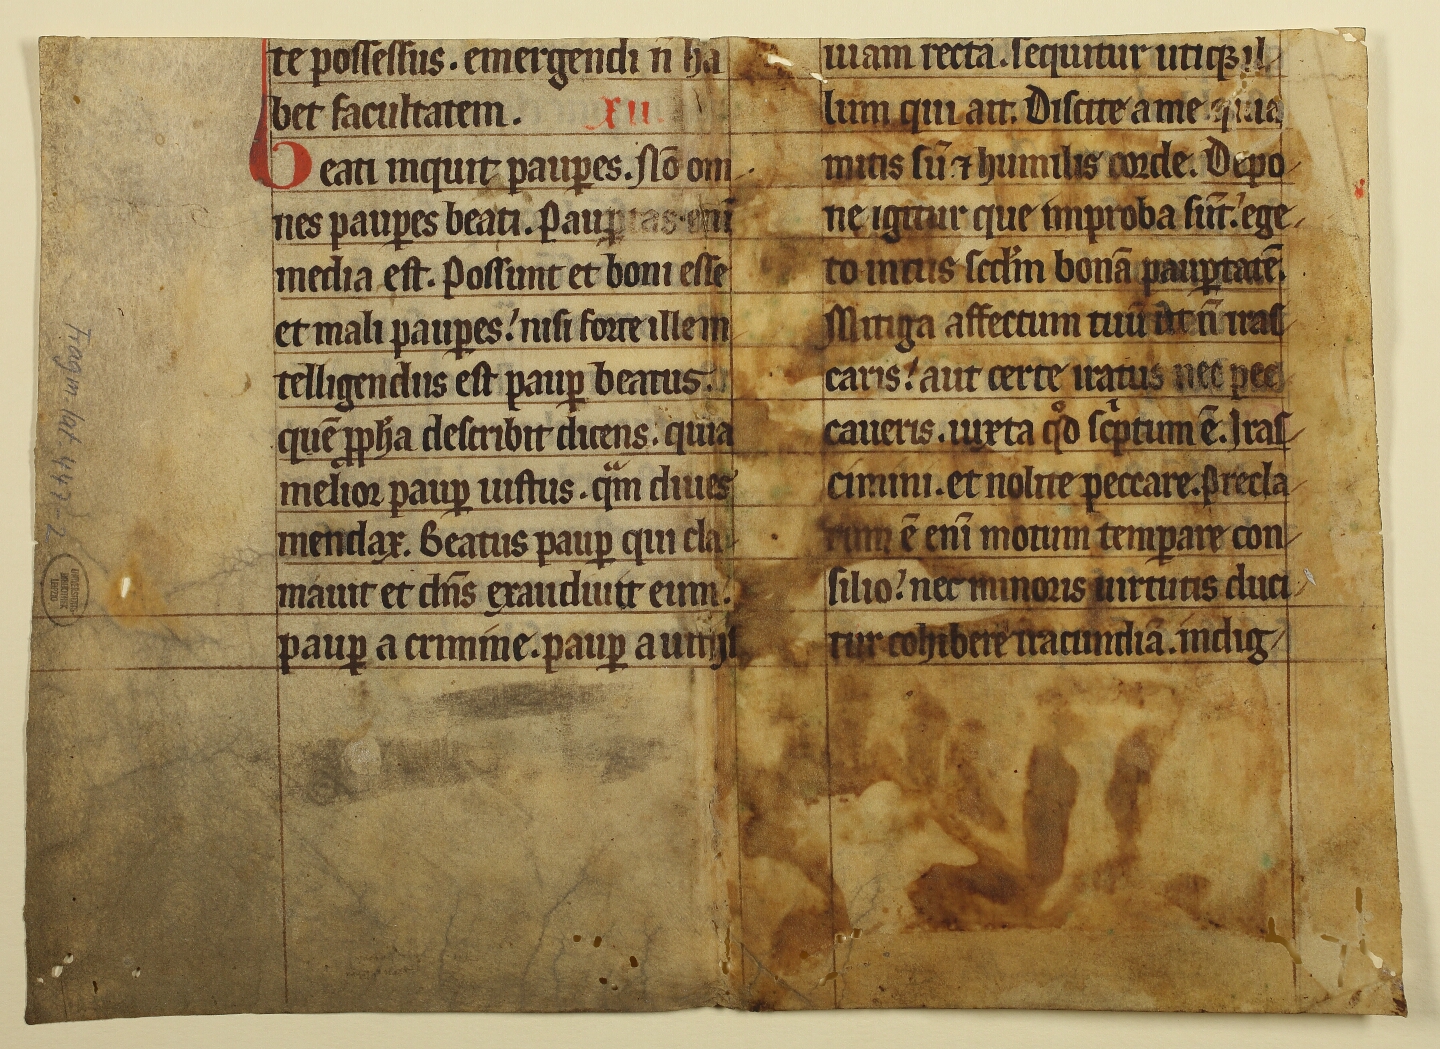 te possessus. emergendi n̄ ha
bet facultatem. xii.
Beati inquit paup̲es. Nō om
nes paup̲es beati. Paup̲tas enī
media est. Possunt et boni esse
et mali paup̲es. nisi forte ille in
telligendus est paup̲ beatus.
quē ꝓph̄a describit dicens. quia
melior paup̲ iustus. qͣm diues
mendax. Beatus paup̲ qui cla
mauit et dn̄s exaudiuit eum.
paup̲ a crimine. paup̲ a uitijs
uiam recta. sequitur utiqꝫ il
lum qui ait. Discite a me quia
mitis sū ⁊ humilis corde. Depo
ne igitur que improba sūt. ege
to intus scd̄m bonā paup̲tatē.
Mitiga affectum tuū ut n̄ iras
caris. aut certe iratus nec pec
caueris. iuxta qͦd sc̄ptum ē. Iras
cimini. et nolite peccare. Precla
rum ē enī motum temp̲are con
silio. nec minoris uirtutis duci
tur cohibere iracundiā. indig
Fragm lat 447-2